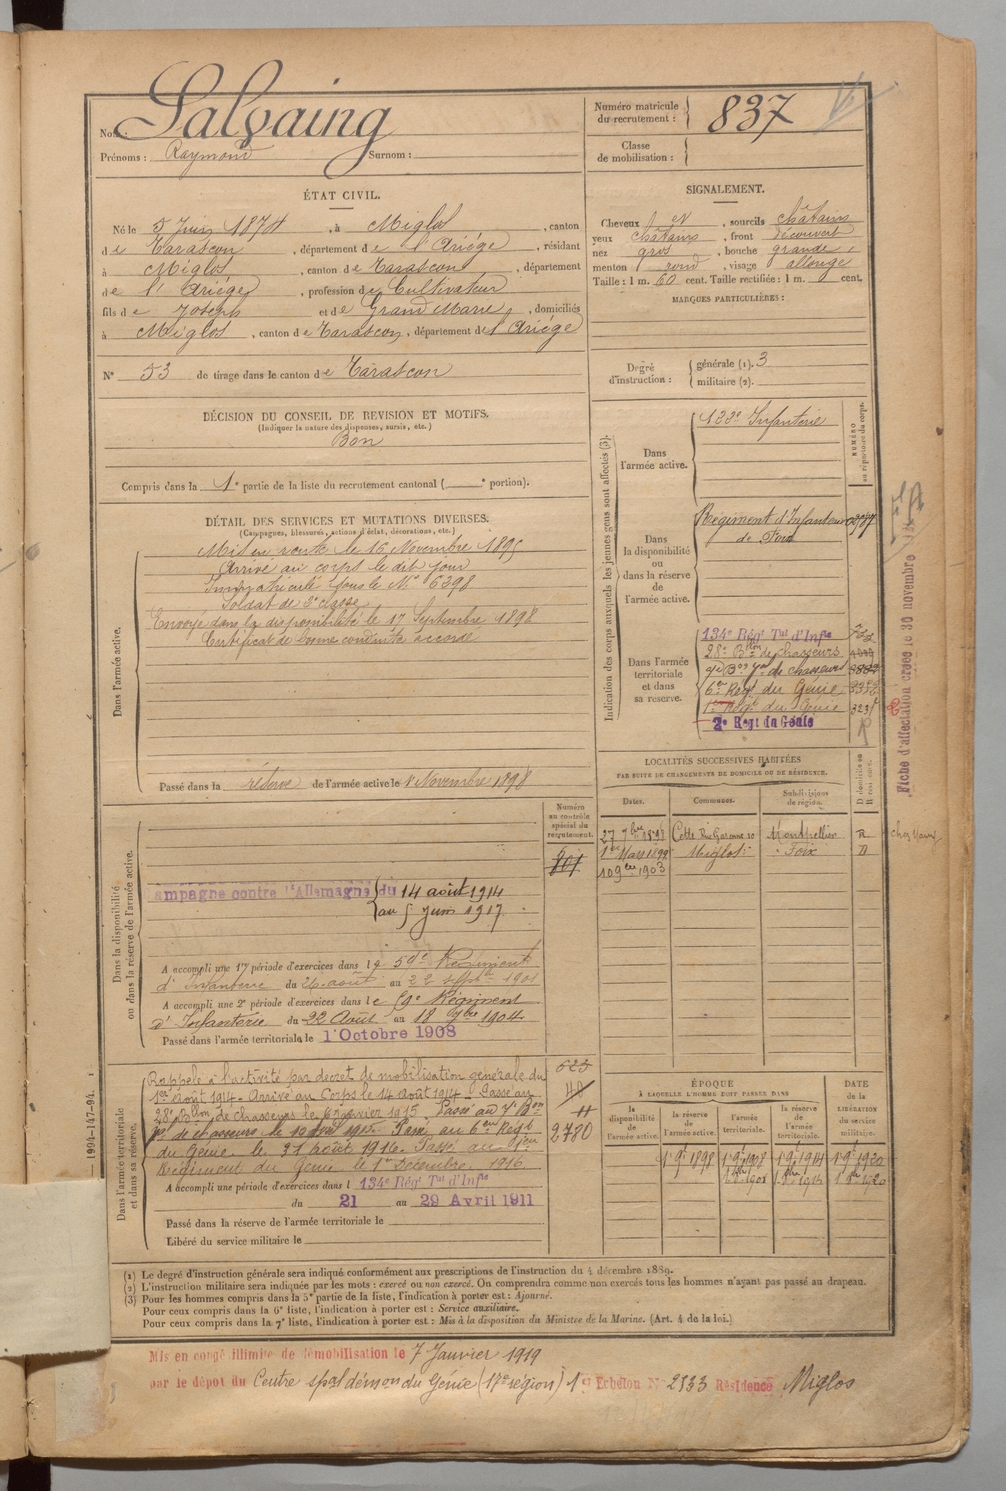 Nom : Salvaing
Prénoms : Raymond Surnom :
Numéro matricule
du recrutement : 837
Classe
de mobilisation :
ÉTAT CIVIL.
Né le 5 Juin 1874, à Miglos, canton
de Tarascon, département de l'Ariége, résidant
à Miglos, canton de Tarascon, département
de l'Ariége, profession de Cultivateur
fils de Joseph et de Grand Marie, domiciliés
à Miglos, canton de Tarascon, département de l'Ariége
N° 53 de tirage dans le canton de Tarascon
SIGNALEMENT.
Cheveux, sourcils châtains
yeux châtains, front découvert
nez gros, bouche grande,
menton rond, visage allongé
Taille : 1 m. 60 cent. Taille rectifiée : 1 m. cent.
MARQUES PARTICULIÈRES :
Degré
d'instruction :
générale (1). 3
militaire (2).
DÉCISION DU CONSEIL DE REVISION ET MOTIFS.
(Indiquer la nature des dispenses, sursis, etc.)
Bon
Compris dans la 1e partie de la liste du recrutement cantonal ( e portion).
DÉTAIL DES SERVICES ET MUTATIONS DIVERSES.
(Campagnes, blessures, actions d'éclat, décorations, etc.)
Dans l'armée active.
Mis en route le 16 Novembre 1895
Arrivé au corps le dit jour
Immatriculé sous le N° 6298
Soldat de 2e classe
Envoyé dans la disponibilité le 17 Septembre 1898
Certificat de bonne conduite accordé
Passé dans la réserve de l'armée active le 1 Novembre 1898
Indication des corps auxquels les jeunes gens sont affectés (3).
NUMÉRO
au répertoire du corps.
Dans
l'armée active.
122e Infanterie
Dans
la disponibilité
ou
dans la réserve
de
l'armée active.
Régiment d'Infanterie
de Foix
Dans l'armée
territoriale
et dans
sa réserve.
134e Régt Tal d'Infie
28e Bon de chasseurs
6e Regt du Génie
1er Regt du Génie
2e Regt du Génie
Fiche d'affectation créée le 30 novembre
LOCALITÉS SUCCESSIVES HABITÉES
PAR SUITE DE CHANGEMENTS DE DOMICILE OU DE RÉSIDENCE.
Dates. Communes. Subdivisions
de région.
D domicile ou
R résidence.
27 7bre 1898 Cette Rue Garenne 10 Montpellier R
1er Mars 1899 Miglos Foix D
10 9bre 1903
Dans la disponibilité
ou dans la réserve de l'armée active.
Numéro
au contrôle
spécial du
recrutement.
801
ampagne contre l'Allemagne du 14 août 1914
au 5 Juin 1917
A accompli une 1re période d'exercices dans le 59e Régiment
d'Infanterie du 26 août au 22 septre 1901
A accompli une 2e période d'exercices dans le 59e Régiment
d'Infanterie du 22 Août au 18 7bre 1904
Passé dans l'armée territoriale le 1 Octobre 1908
Dans l'armée territoriale
et dans sa réserve.
Rappelé à l'activité par décret de mobilisation générale du
1er Août 1914. Arrivé au Corps le 14 août 1914. Passé au
28e Bllon de chasseurs le 6 janvier 1915. Passé au 7e Bon
de chasseurs le 10 1915. Passé au 6eme Régt
du Génie le 31 août 1916. Passé au 1er
Régiment du Génie le 1er Décembre 1916
2780
A accompli une période d'exercices dans l 134e Régt Tal d'Infie
du 21 au 29 Avril 1911
Passé dans la réserve de l'armée territoriale le
Libéré du service militaire le
1904-147-94.
ÉPOQUE
À LAQUELLE L'HOMME DOIT PASSER DANS
la
disponibilité
de
l'armée active.
la réserve
de
l'armée active.
l'armée
territoriale.
la réserve
de
l'armée
territoriale.
DATE
de la
LIBÉRATION
du service
militaire.
1 9e 1898 1 9e 1908 1 9e 1914 1 9e 1920
(1) Le degré d'instruction générale sera indiqué conformément aux prescriptions de l'instruction du 4 décembre 1889.
(2) L'instruction militaire sera indiquée par les mots : exercé ou non exercé. On comprendra comme non exercés tous les hommes n'ayant pas passé au drapeau.
(3) Pour les hommes compris dans la 5e partie de la liste, l'indication à porter est : Ajourné.
Pour ceux compris dans la 6e liste, l'indication à porter est : Service auxiliaire.
Pour ceux compris dans la 7e liste, l'indication à porter est : Mis à la disposition du Ministre de la Marine. (Art. 4 de la loi.)
Mis en congé illimité de démobilisation le 7 Janvier 1919
par le dépot du Centre spal démon du Génie (17e région) 1er Echelon N° 2133 Résidence Miglos